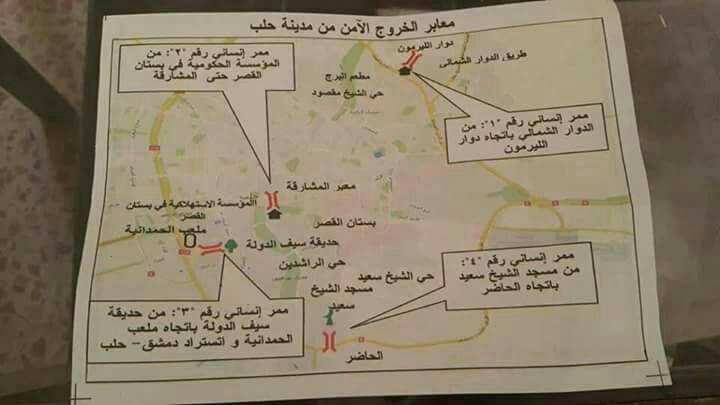 معابر الخروج الآمن من مدينة حلب
ممر إنساني رقم "٢": من
المؤسسة الحكومية في بستان
القصر حتى المشارقة
دوار الليرمون
طريق الدوار الشمالي
مطعم البرج
حي الشيخ مقصود
ممر إنساني رقم "١": من
الدوار الشمالي باتجاه دوار
الليرمون
معبر المشارقة
المؤسسة الاستهلاكية في بستان
القصر
بستان القصر
ملعب الحمدانية
حديقة سيف الدولة
حي الراشدين
حي الشيخ سعيد
مسجد الشيخ
سعيد
ممر إنساني رقم "٤":
من مسجد الشيخ سعيد
باتجاه الحاضر
ممر إنساني رقم "٣": من حديقة
سيف الدولة باتجاه ملعب
الحمدانية و اتستراد دمشق – حلب
الحاضر